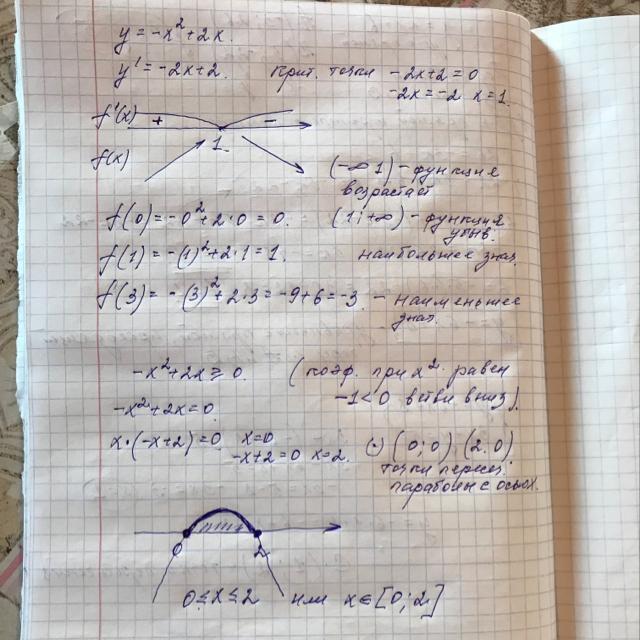 y = -x² + 2x.
y' = -2x+2. крит. точки -2x+2=0
-2x=-2 x=1.
f'(x) + -
1
f(x)
(-∞ 1) - функция
возрастает
f(0) = -0²+2·0 = 0. (1; +∞) - функция
убыв.
f(1) = -(1)²+2·1 = 1. наибольшее знач.
f(3) = -(3)²+2·3 = -9+6 = -3 - наименьшее
знач.
-x²+2x ≥ 0. (коэф. при x² равен
-1<0 ветви вниз).
-x²+2x=0.
x·(-x+2)=0 x=0
-x+2=0 x=2. (·) (0;0) (2.0)
точки перес.
параболы с осью x.
0 2
0≤x≤2 или x∈[0;2]